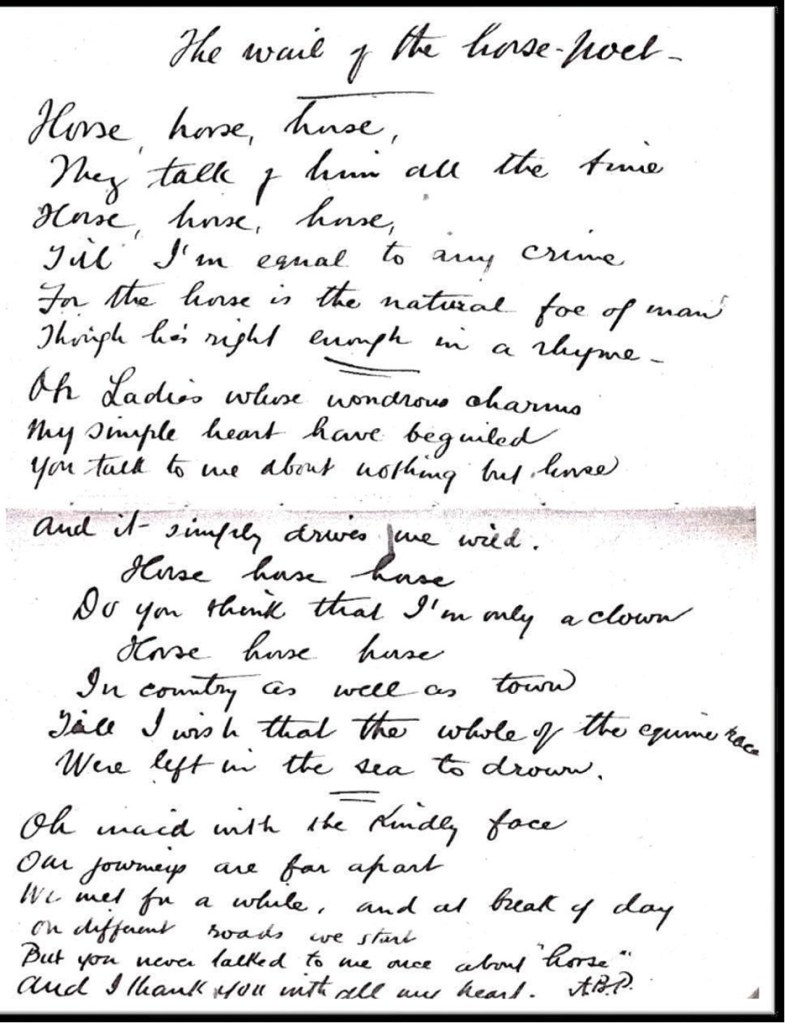 The wail of the horse-poet -
Horse, horse, horse,
They talk of him all the time
Horse, horse, horse,
Till I'm equal to any crime
For the horse is the natural foe of man
Though he's right enough in a rhyme -
Oh Ladies whose wondrous charms
My simple heart have beguiled
You talk to me about nothing but horse
And it simply drives me wild.
Horse horse horse
Do you think that I'm only a clown
Horse horse horse
In country as well as town
Till I wish that the whole of the equine race
Were left in the sea to drown.
Oh maid with the kindly face
Our journeys are far apart
We met for a while, and at break of day
On different roads we start
But you never talked to me once about "horse"
And I thank you with all my heart. A.B.P.